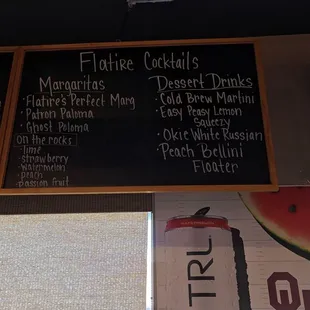 Flatire Cocktails
Margaritas
· Flatire's Perfect Marg
· Patron Paloma
· Ghost Poloma
on the rocks
- lime
- strawberry
- watermelon
- peach
- passion fruit
Dessert Drinks
· Cold Brew Martini
· Easy Peasy Lemon
Squeezy
· Okie White Russian
· Peach Bellini
Floater
TRU